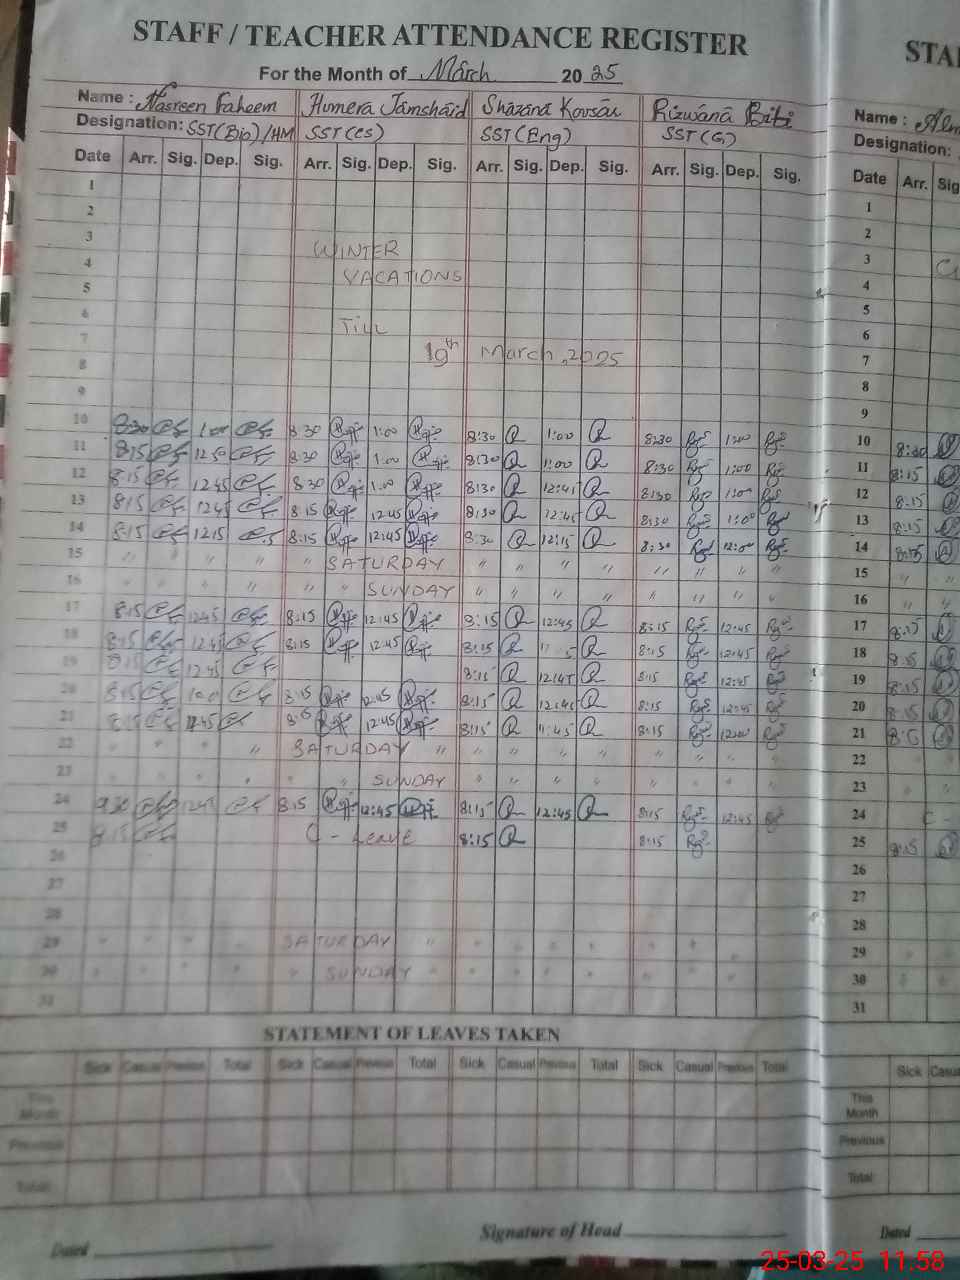 STAFF / TEACHER ATTENDANCE REGISTER
For the Month of March 2025
Name : Nasreen Faheem Humera Jamshaid Shazana Kousar Rizwana Bibi
Designation: SST(Bio)/HM SST(CS) SST(Eng) SST(G)
Date Arr. Sig. Dep. Sig. Arr. Sig. Dep. Sig. Arr. Sig. Dep. Sig. Arr. Sig. Dep. Sig.
1
2
3 WINTER
4 VACATIONS
5
6 Till
7 19th March, 2025
8
9
10 8:30 1:00 8:30 1:00 8:30 1:00 8:30 1:00
11 8:15 12:50 8:30 1:00 8:30 1:00 8:30 1:00
12 8:15 12:45 8:30 1:00 8:30 12:45 8:30 1:00
13 8:15 12:45 8:15 12:45 8:30 12:45 8:30 1:00
14 8:15 12:15 8:15 12:45 8:30 12:15 8:30 12:00
15 " " " " " SATURDAY " " " " " " " "
16 " " " " " SUNDAY " " " " " " " "
17 8:15 12:45 8:15 12:45 8:15 12:45 8:15 12:45
18 8:15 12:45 8:15 12:45 8:15 8:15 12:45
19 8:15 12:45 8:15 12:45 8:15 12:45
20 8:15 8:15 12:45 8:15 12:45 8:15 12:45
21 8:15 12:45 12:45 8:15 8:15 12:00
22 " " " " SATURDAY " " " " " " " " "
23 " " " " " SUNDAY " " " " " " " "
24 9:30 12:45 8:15 12:45 8:15 12:45 8:15 12:45
25 8:15 C - Leave 8:15 8:15
26
27
28
29 " " " " SATURDAY " " " " " " "
30 " " " " " SUNDAY " " " " " " " "
31
STATEMENT OF LEAVES TAKEN
Sick Casual Previous Total Sick Casual Previous Total Sick Casual Previous Total Sick Casual Previous Total
This Month
Previous
Total
Signature of Head
Dated
STA
Name :
Designation:
Date Arr. Sig
1
2
3
4
5
6
7
8
9
10 8:30
11 8:15
12 8:15
13 8:15
14 8:15
15 " "
16 " "
17 8:15
18 8:15
19 8:15
20 8:15
21
22 " "
23 " "
24 C -
25 8:15
26
27
28
29 " "
30 " "
31
Sick Casua
This Month
Previous
Total
Dated
25-03-25 11.58